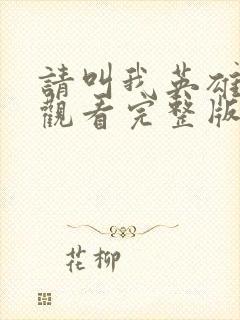 請叫我英雄
觀看完整版
花柳